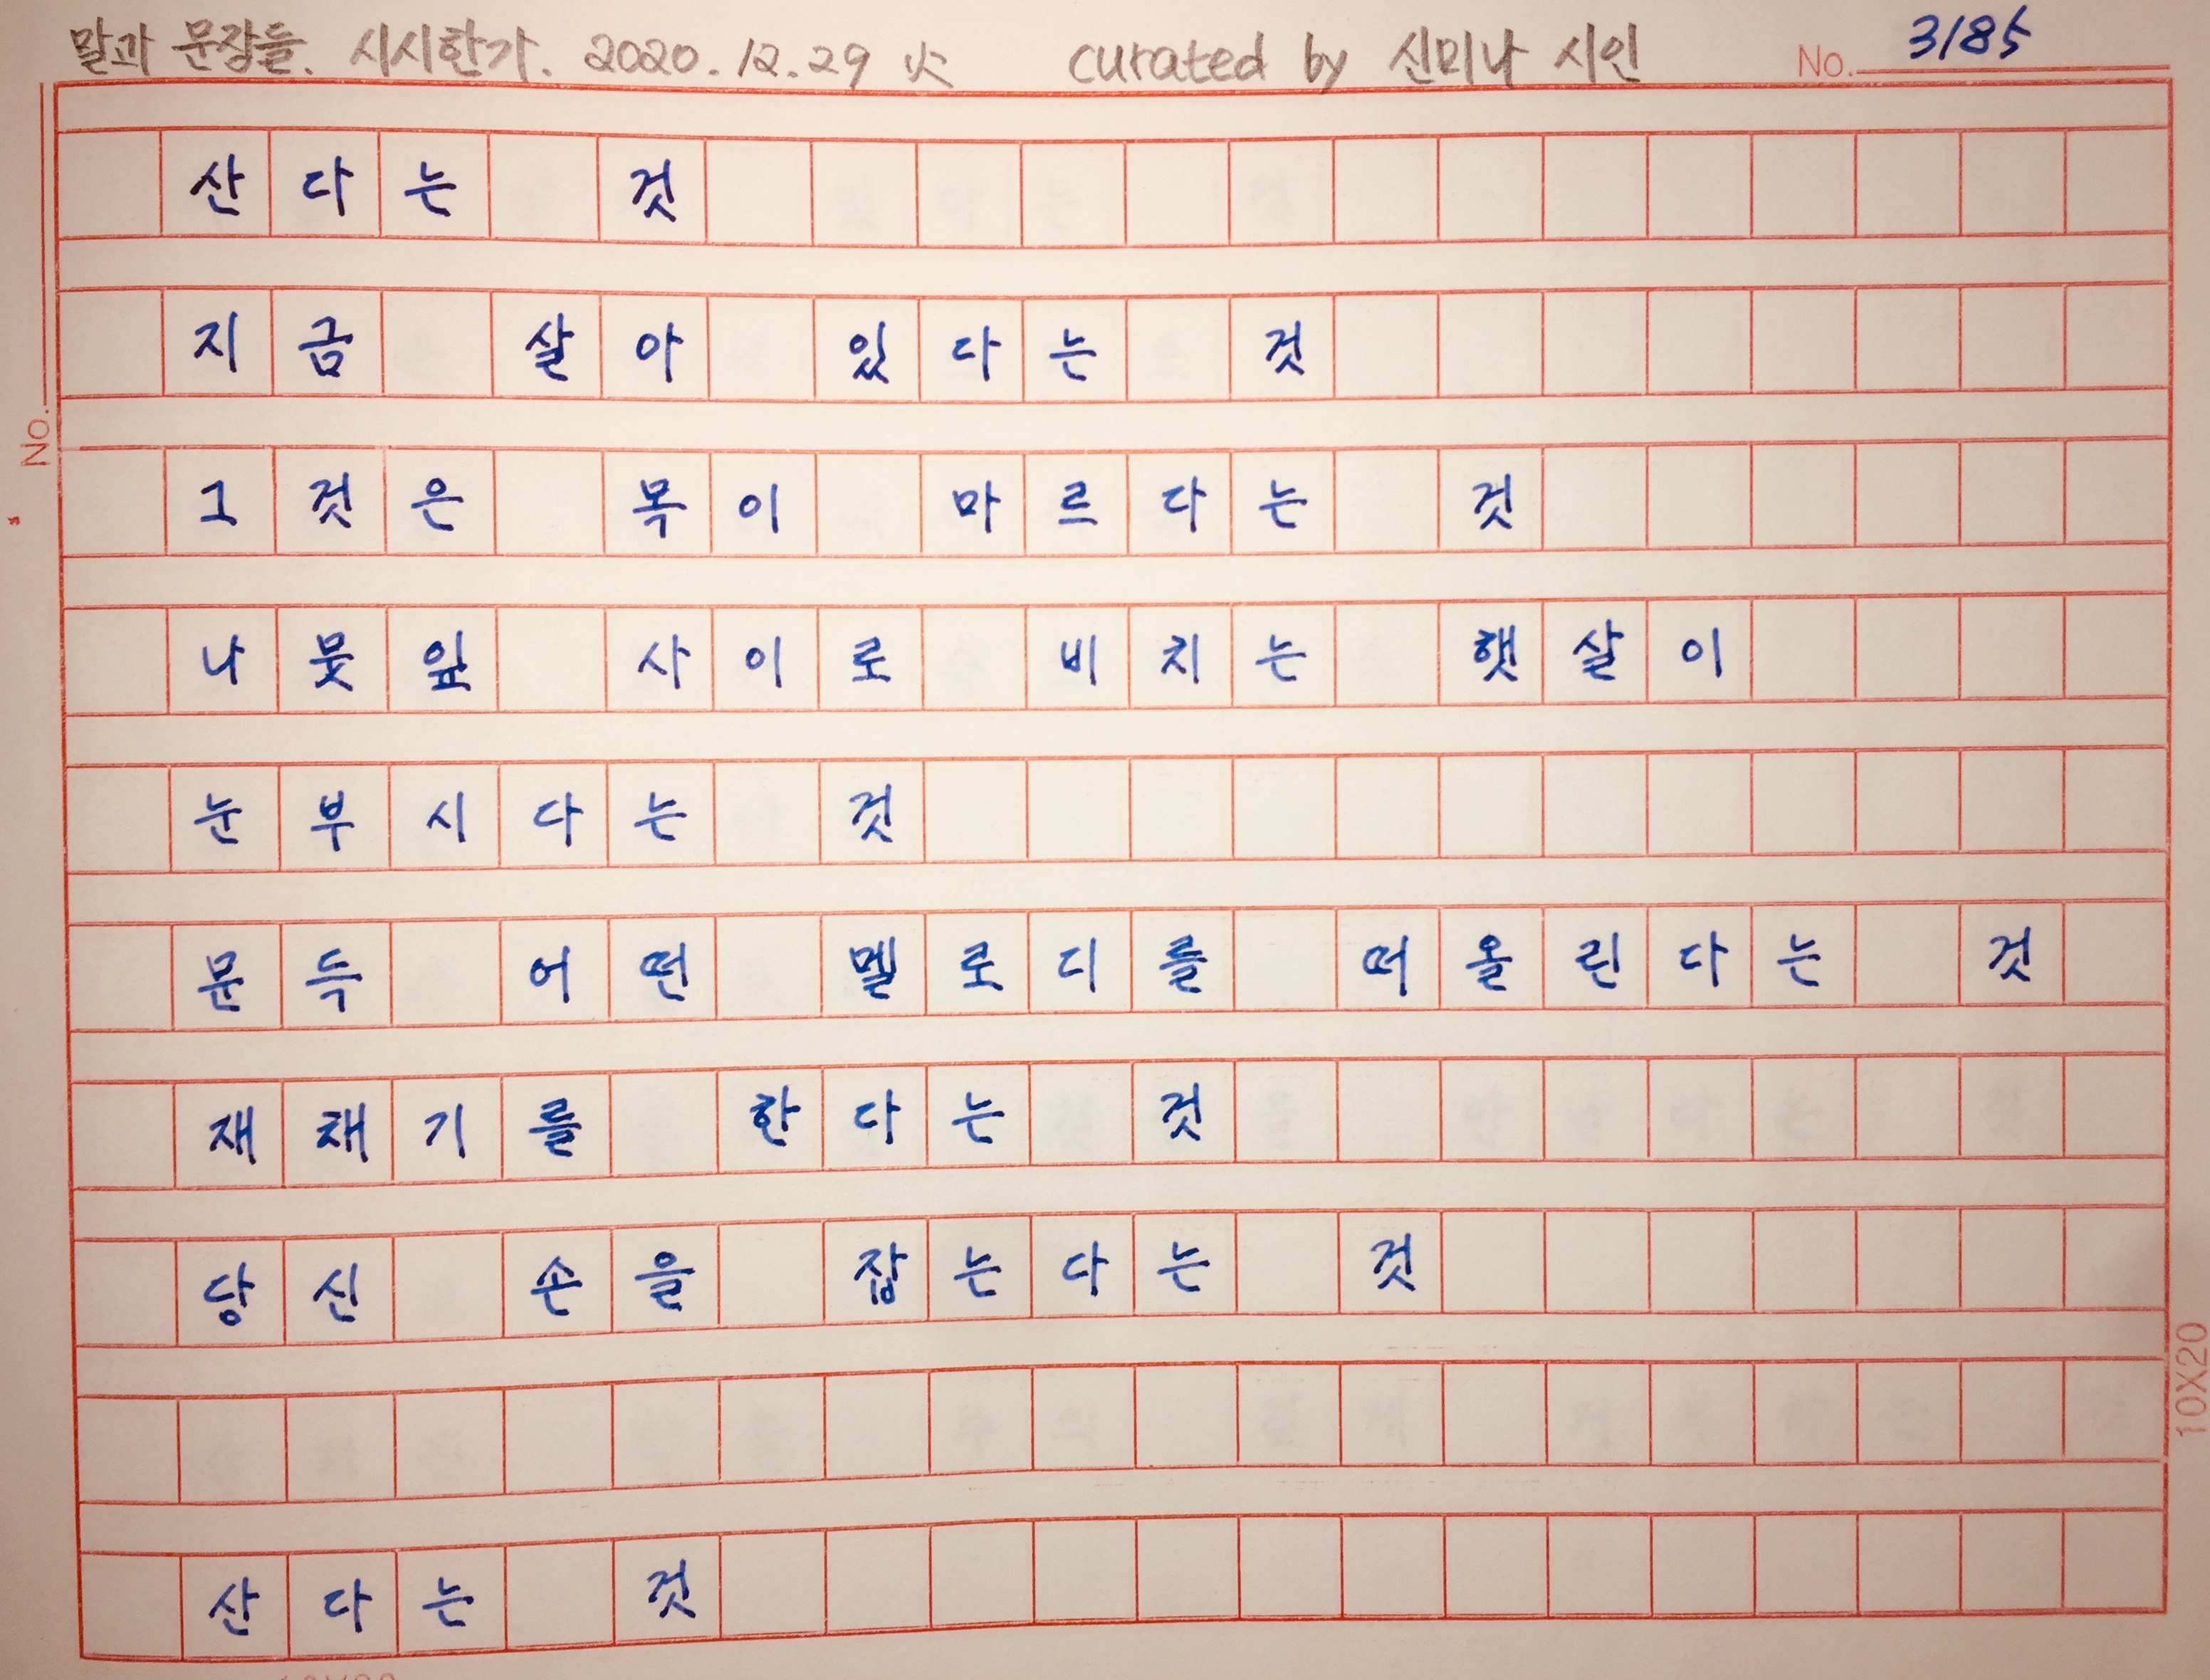 말과 문장들. 시시한가. 2020.12.29 火 curated by 신미나 시인
No. 3185
산다는 것
지금 살아 있다는 것
그것은 목이 마르다는 것
나뭇잎 사이로 비치는 햇살이
눈부시다는 것
문득 어떤 멜로디를 떠올린다는 것
재채기를 한다는 것
당신 손을 잡는다는 것
산다는 것
No.
10X20